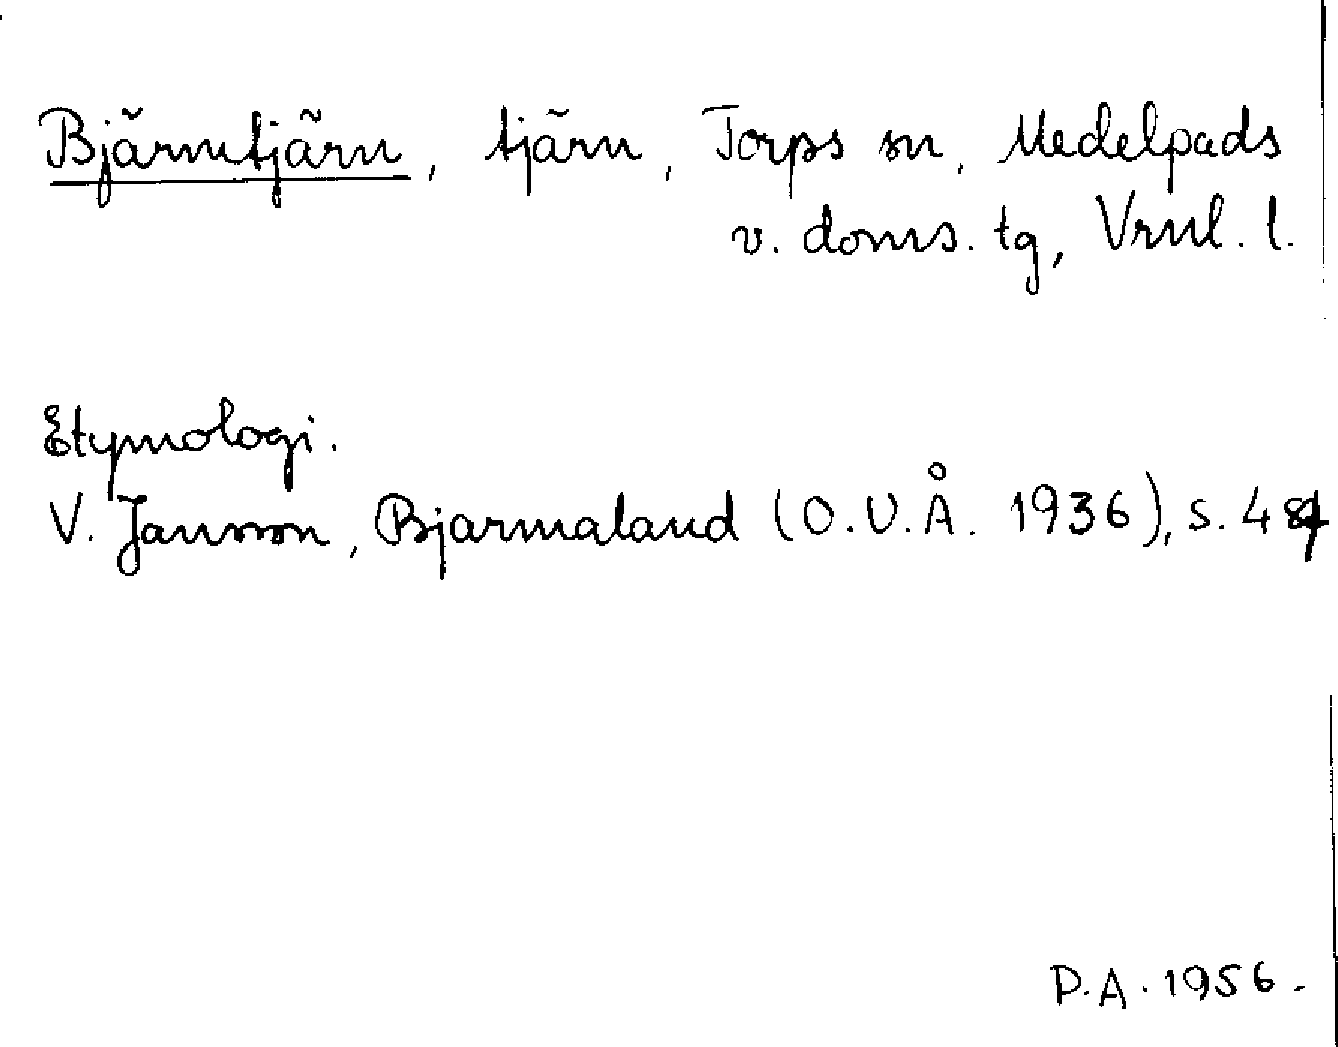 Bjärmtjärn, tjärn, Torps sn, Medelpads
v. doms. tg, Vrnl. l.
Etymologi.
V. Jansson, Bjarmaland (O.V.Å. 1936), s.
P.A. 1956.